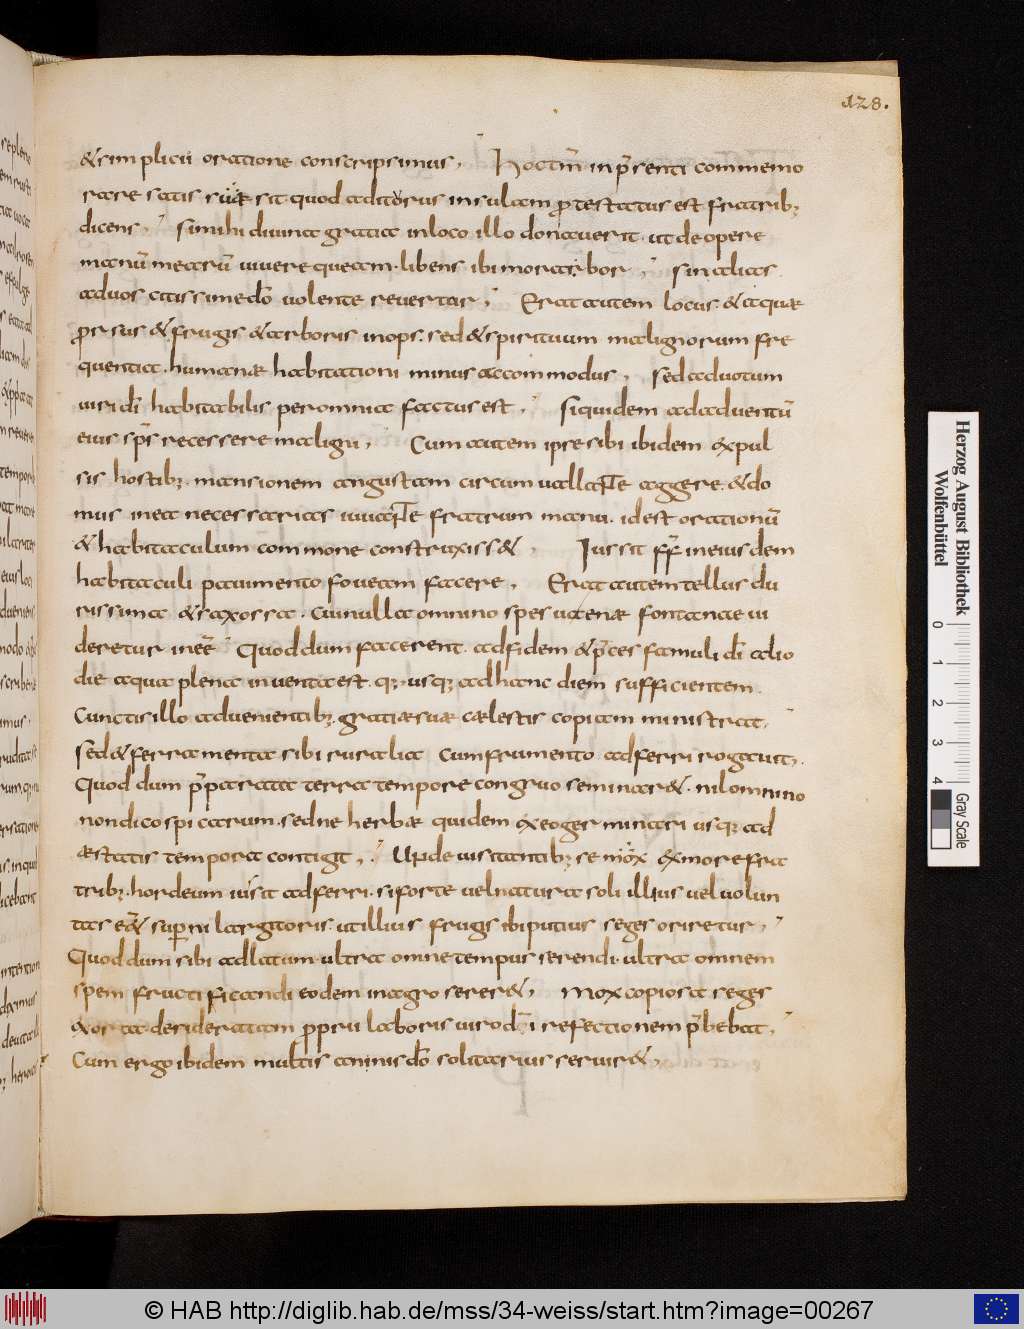 128.
& simplicii oratione conscripsimus, Hoc tm̄ in p̄senti commemo
rare satis sit quod aditurus insulam protestatus est fratrib;
dicens, Si mihi divina gratia in loco illo donaverit. ut de opere
manuū mearū vivere queam. libens ibi morabor, Sin alias
ad vos citissime do volente revertar, Erat autem locus & aquæ
prorsus & frugis & arboris inops. sed & spirituum malignorum fre
quentia. humanæ habitationi minus accommodus, Sed ad votum
viri di habitabilis per omnia factus est, Siquidem ad adventū
eius sps recessere maligni, Cum autem ipse sibi ibidem expul
sis hostib; mansionem angustam circumvallante aggere. & do
mus in ea necessarias iuvante fratrum manu. id est oratoriū
& habitaculum commone construxiss&, Iussit frr in eiusdem
habitaculi pavimento foveam facere, Erat autem tellus du
rissima & saxossa. Cui nulla omnino spes venæ fontanae vi
deretur inēē Quod dum facerent. ad fidem & p̄ces famuli di alio
die aqua plena inventa est. q; usq; ad hanc diem sufficientem
Cunctis illo advenientib; gratiæ suæ cælestis copiam ministrat,
Sed & ferramenta sibi ruralia cum frumento adferri rogavit,
Quod dum p̄parata terra tempore congruo seminar&. nil omnino
non dico spicarum. sed ne herbæ quidem ex eo germinari usq; ad
æstatis tempora contigit, Unde visitantib; se mox ex more fra
trib; hordeum iusit adferri. si forte vel natura soli illius vel volun
tas eēt superni largitoris. ut illius frugis ibi putius seges oriretur,
Quod dum sibi adlatum ultra omne tempus serendi. ultra omnem
spem fructificandi eodem in agro serer&, Mox copiosa seges
exorta desideratam proprii laboris viro di refectionem p̄bebat,
Cum ergo ibidem multis annis do solitarius servir&,
Herzog August Bibliothek
Wolfenbüttel
0 1 2 3 4
Gray Scale
© HAB http://diglib.hab.de/mss/34-weiss/start.htm?image=00267